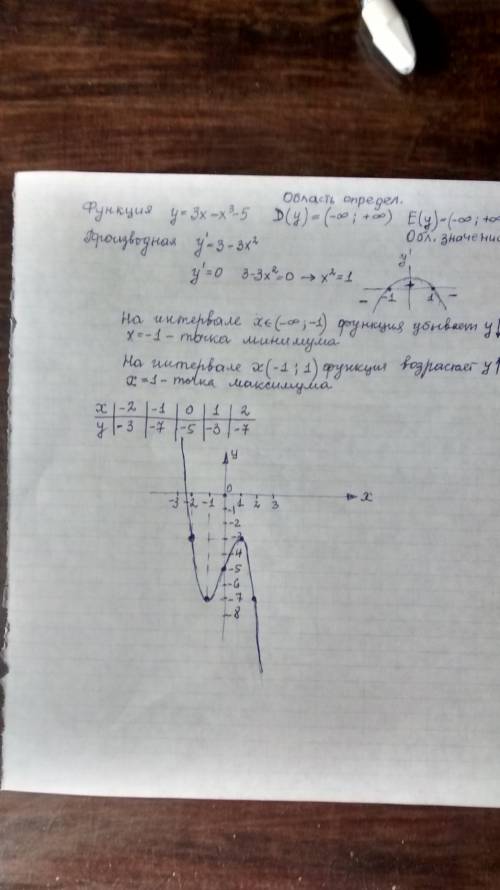 Область определ.
Функция y=3x-x³-5 D(y)=(-∞; +∞) E(y)=(-∞; +∞
Производная y'=3-3x² Обл. значени
y'=0 3-3x²=0 → x²=1
y'
+
-1 1
- -
На интервале x∈(-∞;-1) функция убывает y↓
x=-1 - точка минимума
На интервале x(-1; 1) функция возрастает y↑
x=1 - точка максимума
x -2 -1 0 1 2
y -3 -7 -5 -3 -7
y
0
-3 -2 -1 1 2 3 x
-1
-2
-3
-4
-5
-6
-7
-8